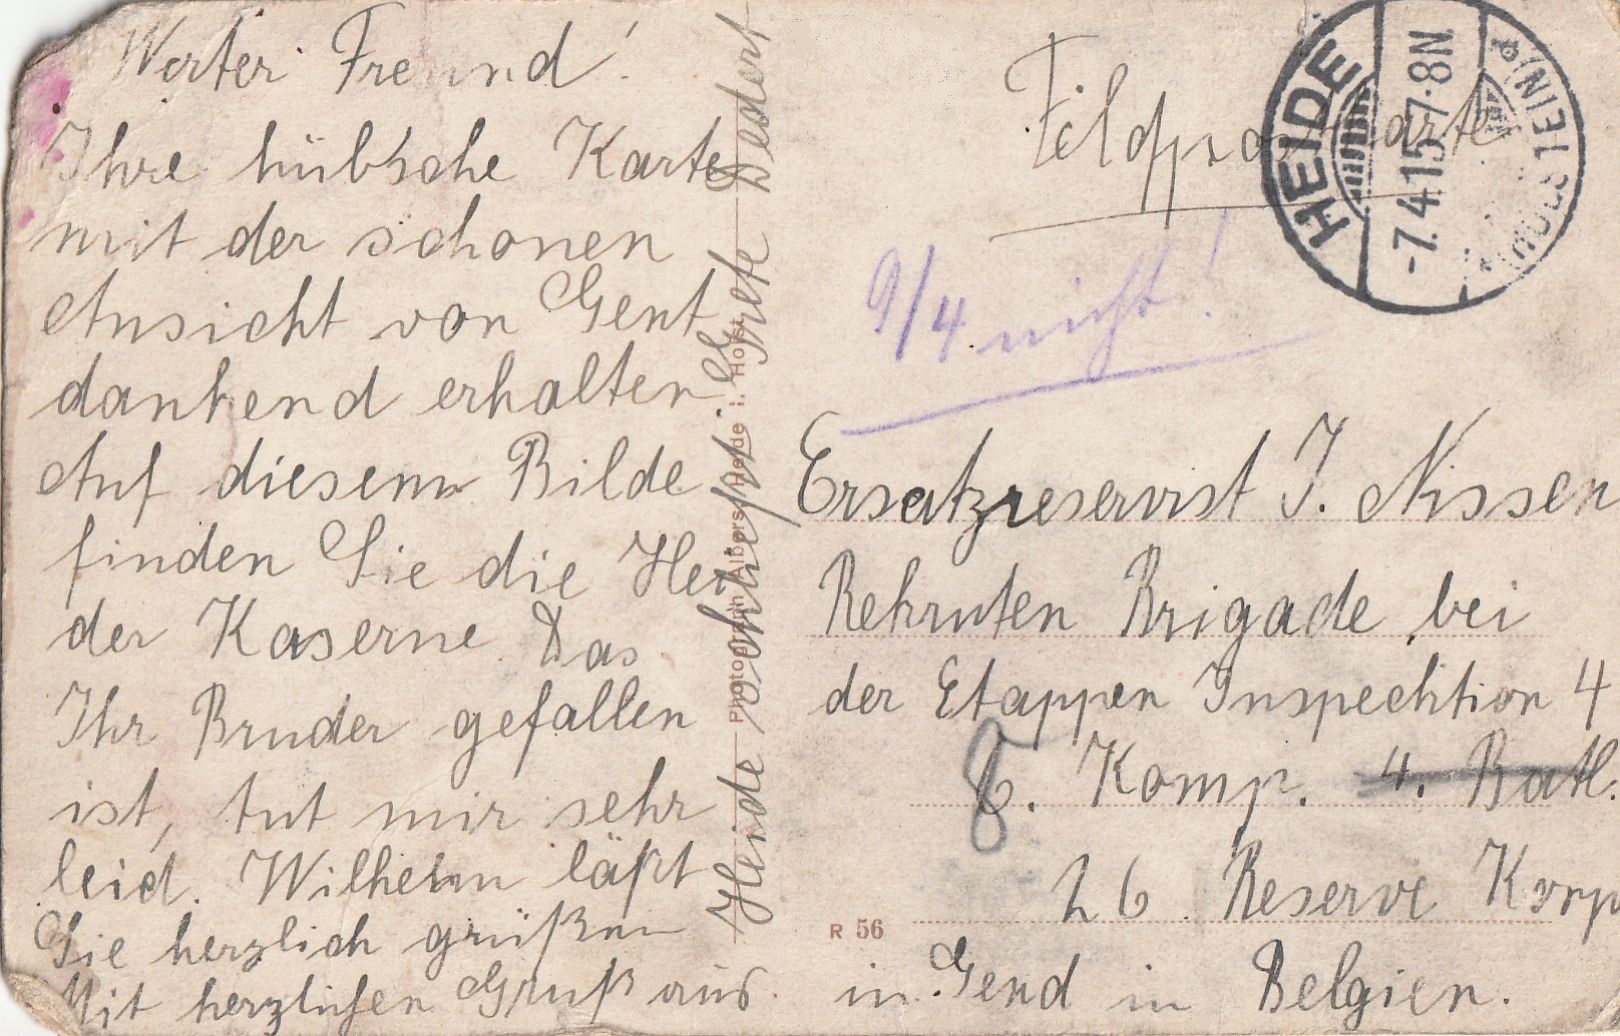 Werter Freund!
Ihre hübsche Karte
mit der schönen
Ansicht von Gent
dankend erhalten.
Auf diesem Bilde
finden Sie die Hei
der Kaserne. Das
Ihr Bruder gefallen
ist, tut mir sehr
leid. Wilhelm läßt
Sie herzlich grüßen
Mit herzlichen Gruß aus
Heide Grete Dedert
Photograph Albers, Heide i. Holst.
Feldpostkarte
HEIDE
-7.4.15.7-8N
9/4 nicht!
Ersatzreservist J. Nissen
Rekruten Brigade bei
der Etappen Inspechtion 4
8. Komp. 4. Batl.
26 Reserve Korp
R 56
in Gend in Belgien.